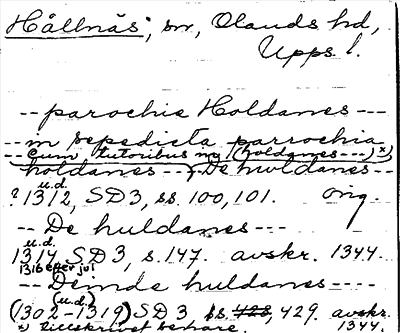 Hållnäs, sn, Olands hd,
Upps l.
-- parochie Holdanes ---
-- in sepedicta parrochia
-- Cum tutoribus no 1 (holdanes ---) x)
holdanes -- De huldanes --
u.d.
? 1312, SD 3, ss. 100, 101. orig.
-- De huldanes ---
u.d.
1314, SD 3, s. 147. avskr. 1344.
1316 efter juli
-- Deinde huldanes ----
(u.d.)
(1302-1319) SD 3, ss. 428, 429. avskr. 1344.
x) tillskrivet senare.